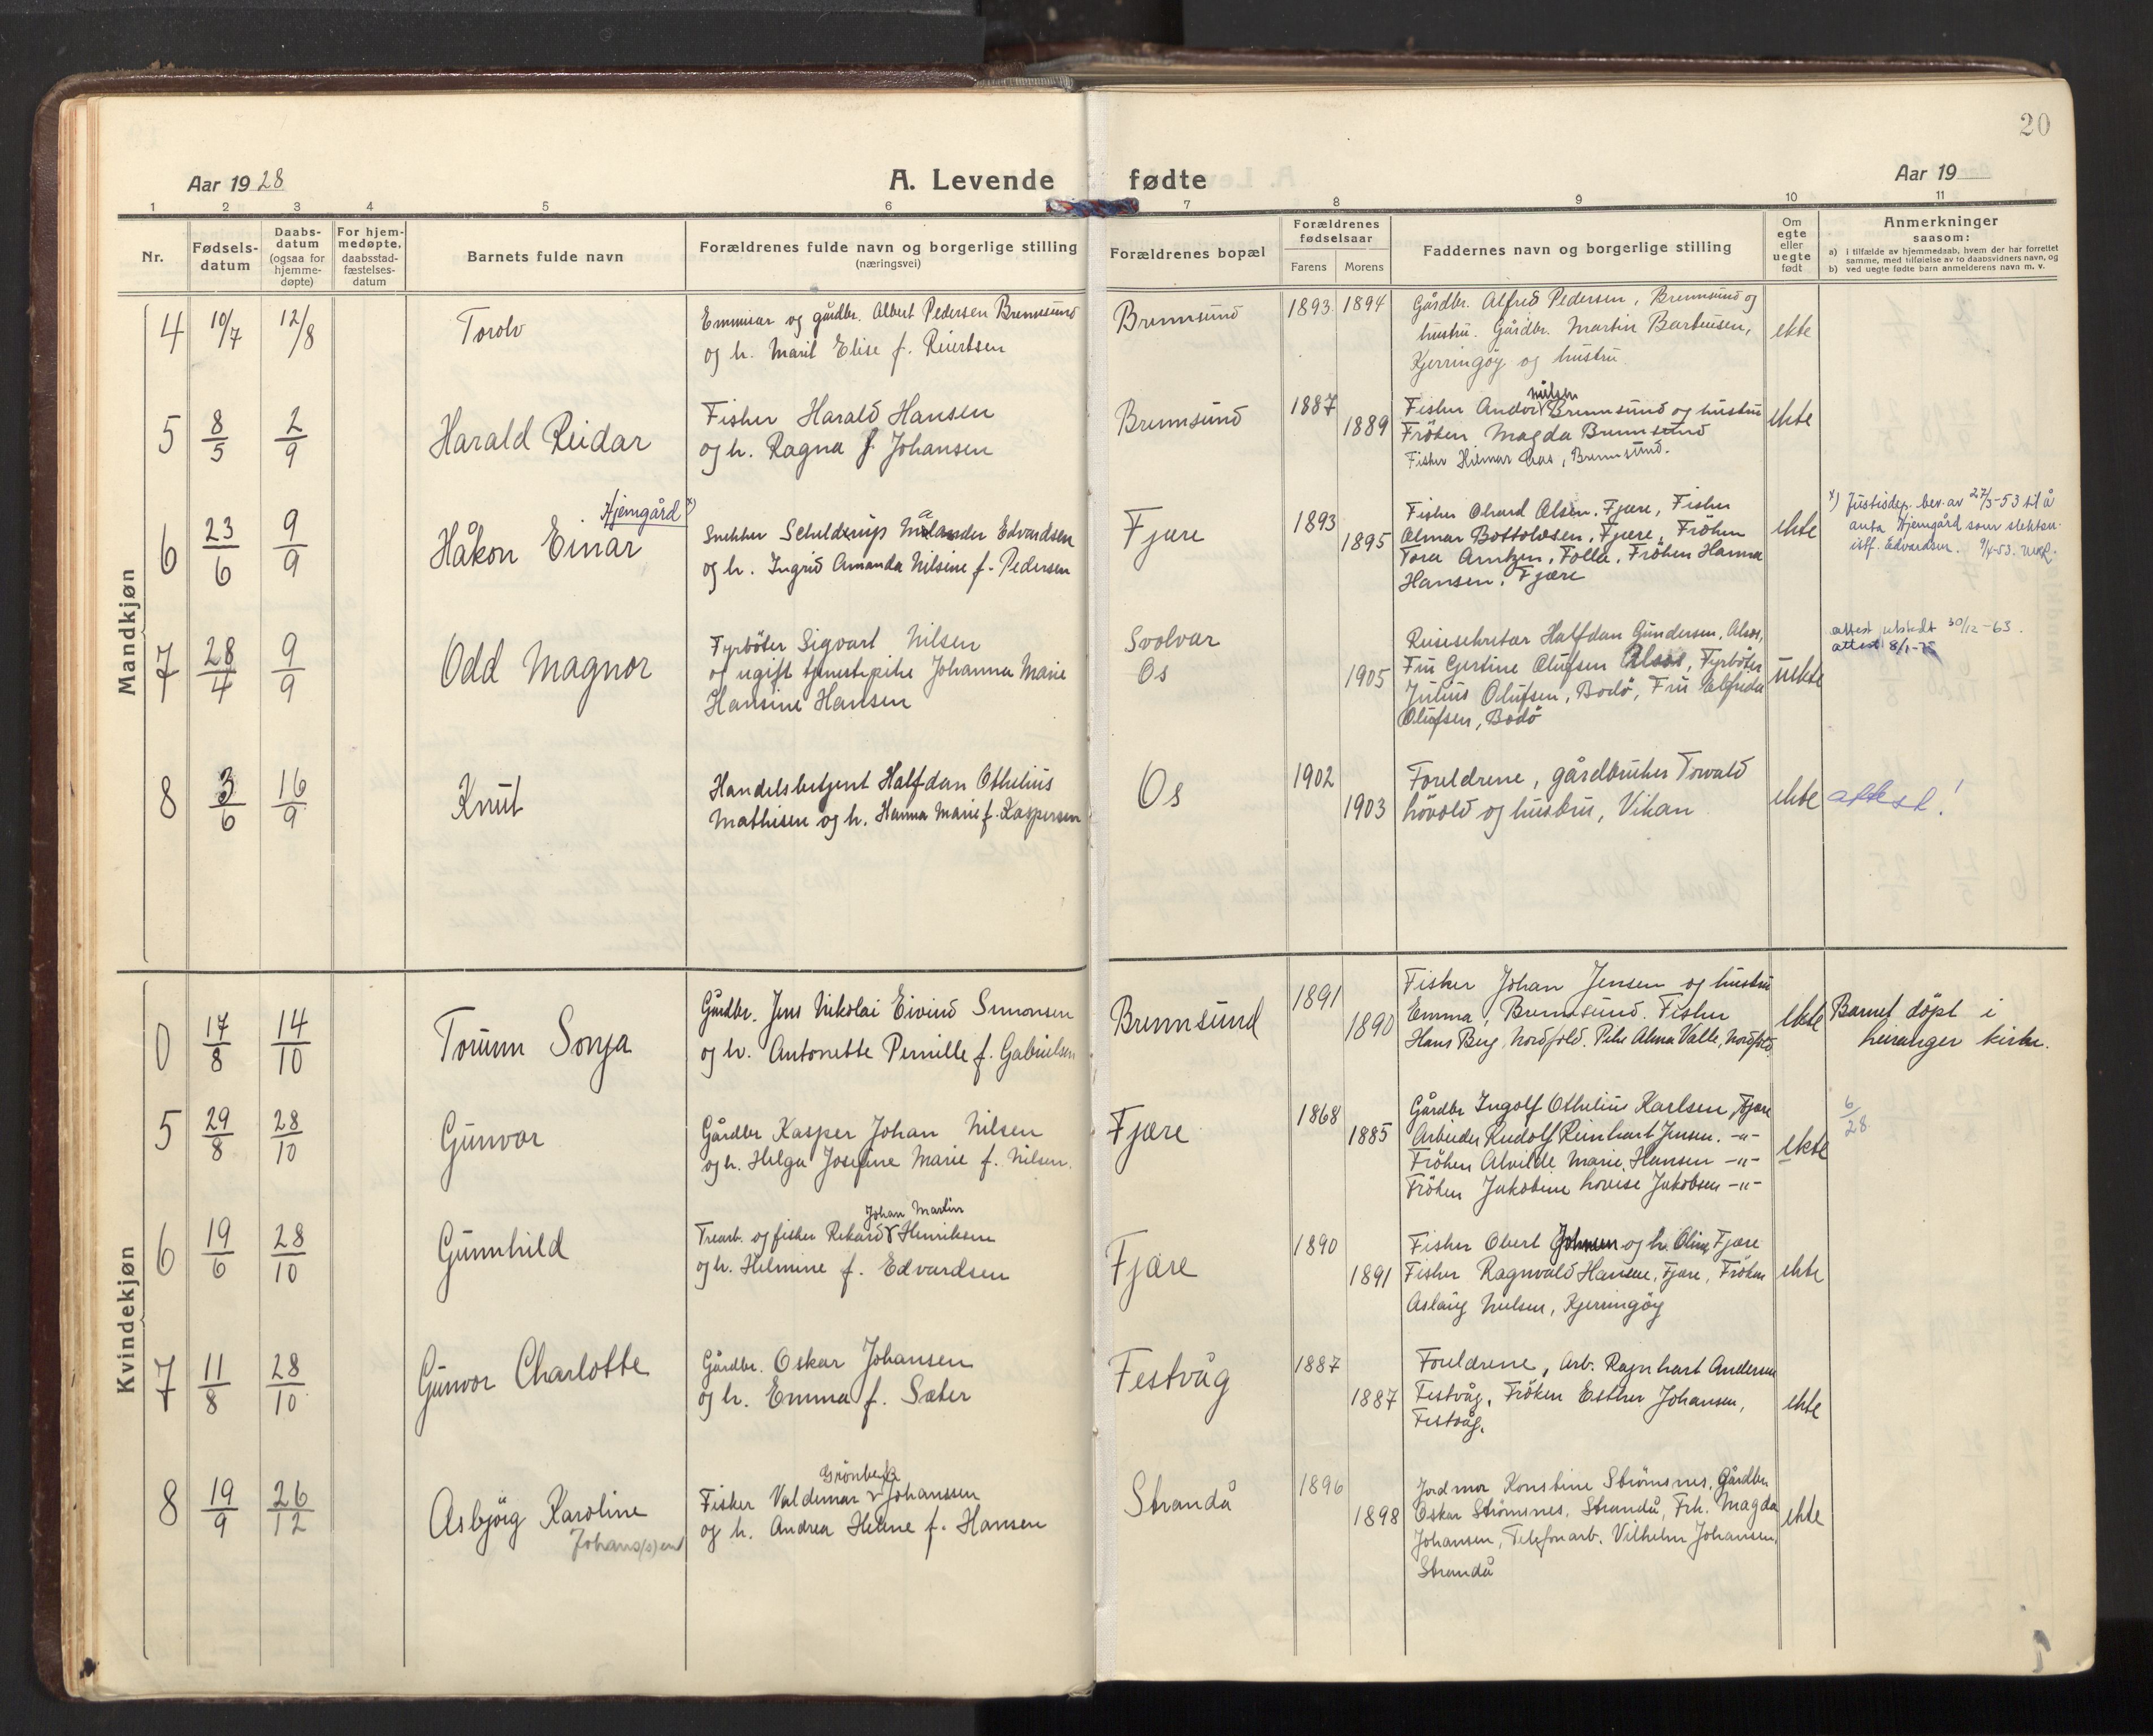 20
Aar 1928
A. Levende fødte
Aar 19
1 2 3 4 5 6 7 8 9 10 11
Nr.
Fødsels-
datum
Daabs-
datum
(ogsaa for
hjemme-
døpte)
For hjem-
medøpte,
daabsstad-
fæstelses-
datum
Barnets fulde navn
Forældrenes fulde navn og borgerlige stilling
(næringsvei)
Forældrenes bopæl
Forældrenes
fødselsaar
Farens Morens
Faddernes navn og borgerlige stilling
Om
egte
eller
uegte
født
Anmerkninger
saasom:
a) i tilfælde av hjemmedaab, hvem der har forrettet
samme, med tilføielse av to daabsvidners navn, og
b) ved uegte fødte barn anmelderens navn m. v.
Mandkjøn
4 10/7 12/8 Torolv
Emmisær og gårdbr. Albert Pedersen Bremsund
og h. Marit Elise f. Reiertsen
Bremsund 1893 1894
Gårdbr. Alfred Pedersen, Bremsund og
hustru. Gårdbr. Martin Bartensen,
Kjerringøy og hustru
ekte
5 8/5 2/9 Harald Reidar
Fisker Harald Hansen
og h. Ragna f. Johansen
Bremsund 1887 1889
Nilsen
Fisker Andor Bremsund og hustru
Frøken Magda Bremsund
Fisker Hilmar Aas, Bremsund.
ekte
6 23/6 9/9 Håkon Einar
Hjemgård x)
Snekker Schelderup Malander Edvardsen
og h. Ingrid Amanda Nilsine f. Pedersen
Fjære 1893 1895
Fisker Olard Olsen, Fjære, Fisker
Almar Bottolvsen, Fjære, Frøken
Tora Arntzen, Folla, Frøken Hanna
Hansen, Fjære
ekte
x) Justisdep. bev. av 27/3-53 til å
anta Hjemgård som slektsn.
istf. Edvardsen. 9/4-53.
7 28/4 9/9 Odd Magnor
Fyrbøter Sigvart Nilsen
og ugift tjenestepike Johanna Marie
Hansine Hansen
Svolvær
Os
1905
Reisesekretær Halfdan Gundersen, Alsos,
Fru Gjertine Olufsen Alsos, Fyrbøter
Julius Olufsen, Bodø, Fru Elfrida
Olufsen, Bodø
uekte
attest utstedt 30/12-63.
attest 8/1-75
8 3/6 16/9 Knut
Handelsbetjent Halfdan Othelius
Mathisen og h. Hanna Marie f. Kaspersen
Os 1902 1903
Foreldrene, gårdbruker Torvald
Løvold og hustru, Vikan
ekte
attest!
Kvindekjøn
0 17/8 14/10 Torunn Sonja
Gårdbr. Jens Nikolai Eivind Simonsen
og h. Antonette Pernille f. Gabrielsen
Bremsund 1891 1890
Fisker Johan Jensen og hustru
Emma, Bremsund. Fisker
Hans Berg, Nordfold. Pike Alma Valle, Nordfold
ekte
Barnet døpt i
Leiranger kirke.
5 29/8 28/10 Gunvor
Gårdbr Kasper Johan Nilsen
og h. Helga Josefine Marie f. Nilsen.
Fjære 1868 1885
Gårdbr Ingolf Othelius Karlsen, Fjære
Arbeider Rudolf Reinhart Jensen. -"-
Frøken Alvilde Marie Hansen -"-
Frøken Jakobine Lovise Jakobsen -"-
ekte
6/28
6 19/6 28/10 Gunnhild
Johan Martin
Trearb. og fisker Rikard Henriksen
og h. Helmine f. Edvardsen
Fjære 1890 1891
Fisker Obert Johnsen og h. Oline, Fjære
Fisker Ragnvald Hansen, Fjære, Frøken
Aslaug Nilsen, Kjerringøy
ekte
7 11/8 28/10 Gunvor Charlotte
Gårdbr. Oskar Johansen
og h. Emma f. Sæter
Festvåg 1887 1887
Foreldrene, Arb. Ragnhart Andersen
Festvåg, Frøken Esther Johansen,
Festvåg.
ekte
8 19/9 26/12 Asbjørg Karoline
Johans(s)en
Grønbeck
Fisker Valdemar Johanssen
og h. Andrea Helene f. Hansen
Strandå 1896 1898
Jordmor Konstine Strømsnes, Gårdbr
Oskar Strømsnes, Strandå, Frk. Magda
Johansen, Telefonarb. Vilhelm Johansen,
Strandå
ekte